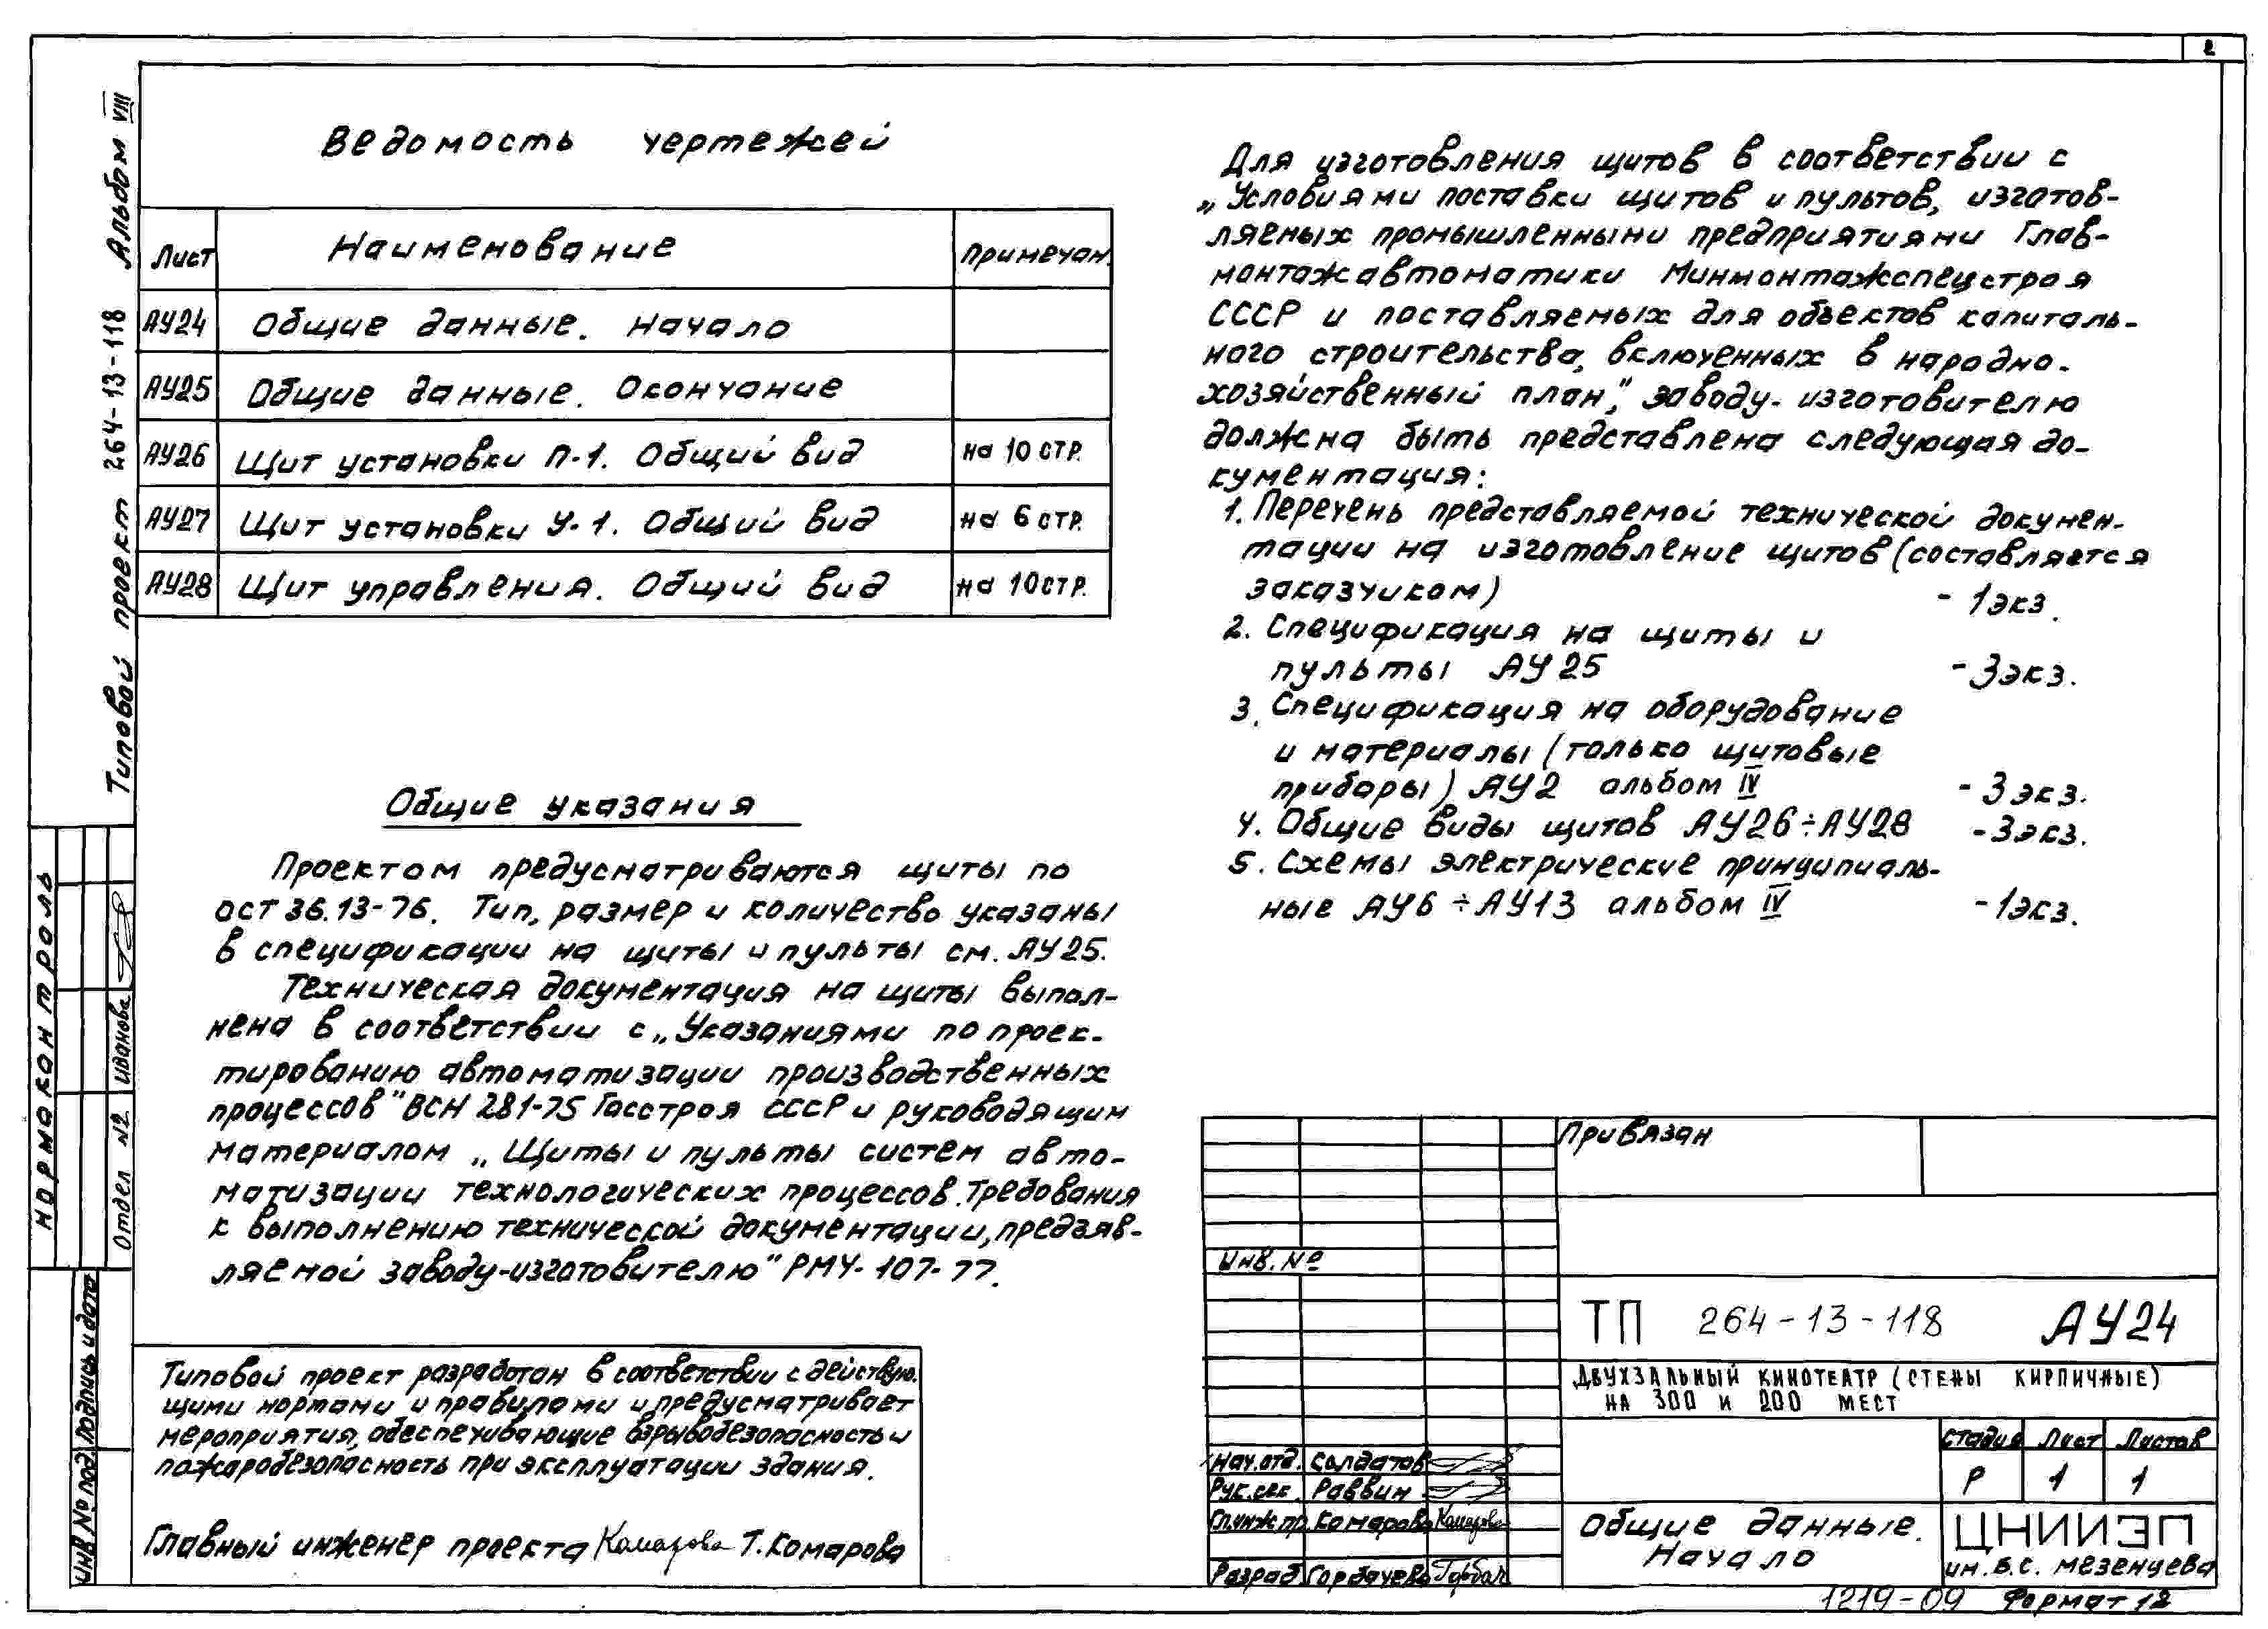 2
Типовой проект 264-13-118 Альбом VIII
Ведомость чертежей
Лист Наименование Примечан.
АУ24 Общие данные. Начало
АУ25 Общие данные. Окончание
АУ26 Щит установки П-1. Общий вид на 10 стр.
АУ27 Щит установки У-1. Общий вид на 6 стр.
АУ28 Щит управления. Общий вид на 10 стр.
Общие указания
Проектом предусматриваются щиты по
ост 36.13-76. Тип, размер и количество указаны
в спецификации на щиты и пульты см. АУ25.
Техническая документация на щиты выпол-
нена в соответствии с „Указаниями по проек-
тированию автоматизации производственных
процессов" ВСН 281-75 Госстроя СССР и руководящим
материалом „Щиты и пульты систем авто-
матизации технологических процессов. Требования
к выполнению технической документации, предъяв-
ляемой заводу-изготовителю" РМ4-107-77.
Типовой проект разработан в соответствии с действую-
щими нормами и правилами и предусматривает
мероприятия, обеспечивающие взрывобезопасность и
пожаробезопасность при эксплуатации здания.
Главный инженер проекта Комарова Т. Комарова
Для изготовления щитов в соответствии с
„Условиями поставки щитов и пультов, изготов-
ляемых промышленными предприятиями Глав-
монтажавтоматики Минмонтажспецстроя
СССР и поставляемых для объектов капиталь-
ного строительства, включенных в народно-
хозяйственный план," заводу-изготовителю
должна быть представлена следующая до-
кументация:
1. Перечень представляемой технической докумен-
тации на изготовление щитов (составляется
заказчиком) - 1 экз.
2. Спецификация на щиты и
пульты АУ25 - 3 экз.
3. Спецификация на оборудование
и материалы (только щитовые
приборы) АУ2 альбом IV - 3 экз.
4. Общие виды щитов АУ26÷АУ28 - 3 экз.
5. Схемы электрические принципиаль-
ные АУ6÷АУ13 альбом IV - 1 экз.
нормаконтроль
Отдел N2 Иванова
Подпись и дата
Инв № под.
Привязан
Инв. №
ТП 264-13-118 АУ24
Двухзальный кинотеатр (стены кирпичные)
на 300 и 200 мест
Стадия Лист Листов
Р 1 1
Нач. отд. Солдатов
Рук. сек. Раввин
Гл.инж.пр. Комарова Комарова
Разраб. Горбачева Горбач
Общие данные.
Начало
ЦНИИЭП
им. Б.С. Мезенцева
1219-09 Формат 12